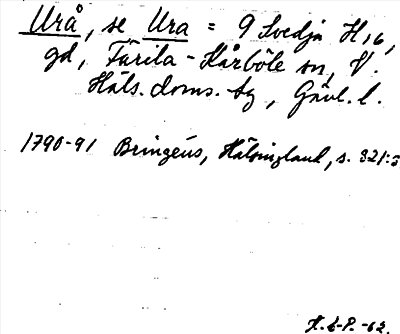 Urå, se Ura = 9 Svedja H, 6,
gd, Färila - Kårböle sn, V.
Häls. doms. tg, Gävl. l.
1790-91 Bringéus, Hälsingland, s. 321:3
H. E-P. -62.